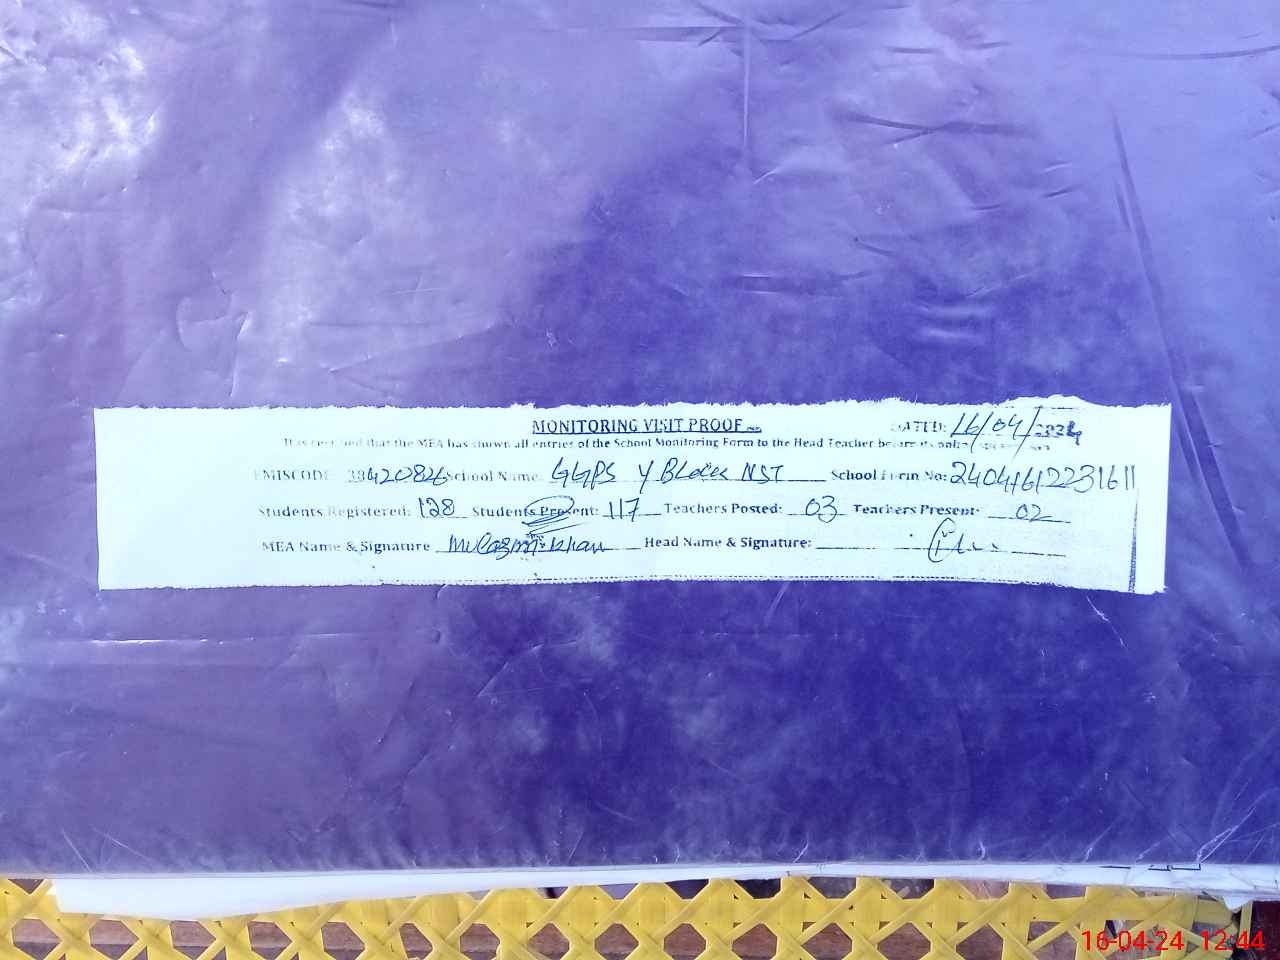 MONITORING VISIT PROOF
DATED: 16/04/2024
It is certified that the MEA has shown all entries of the School Monitoring Form to the Head Teacher before
EMISCODE 38420826 School Name: GGPS Y Block NST School Form No: 24041612231611
Students Registered: 128 Students Present: 117 Teachers Posted: 03 Teachers Present: 02
MEA Name & Signature Khan Head Name & Signature:
16-04-24 12:44